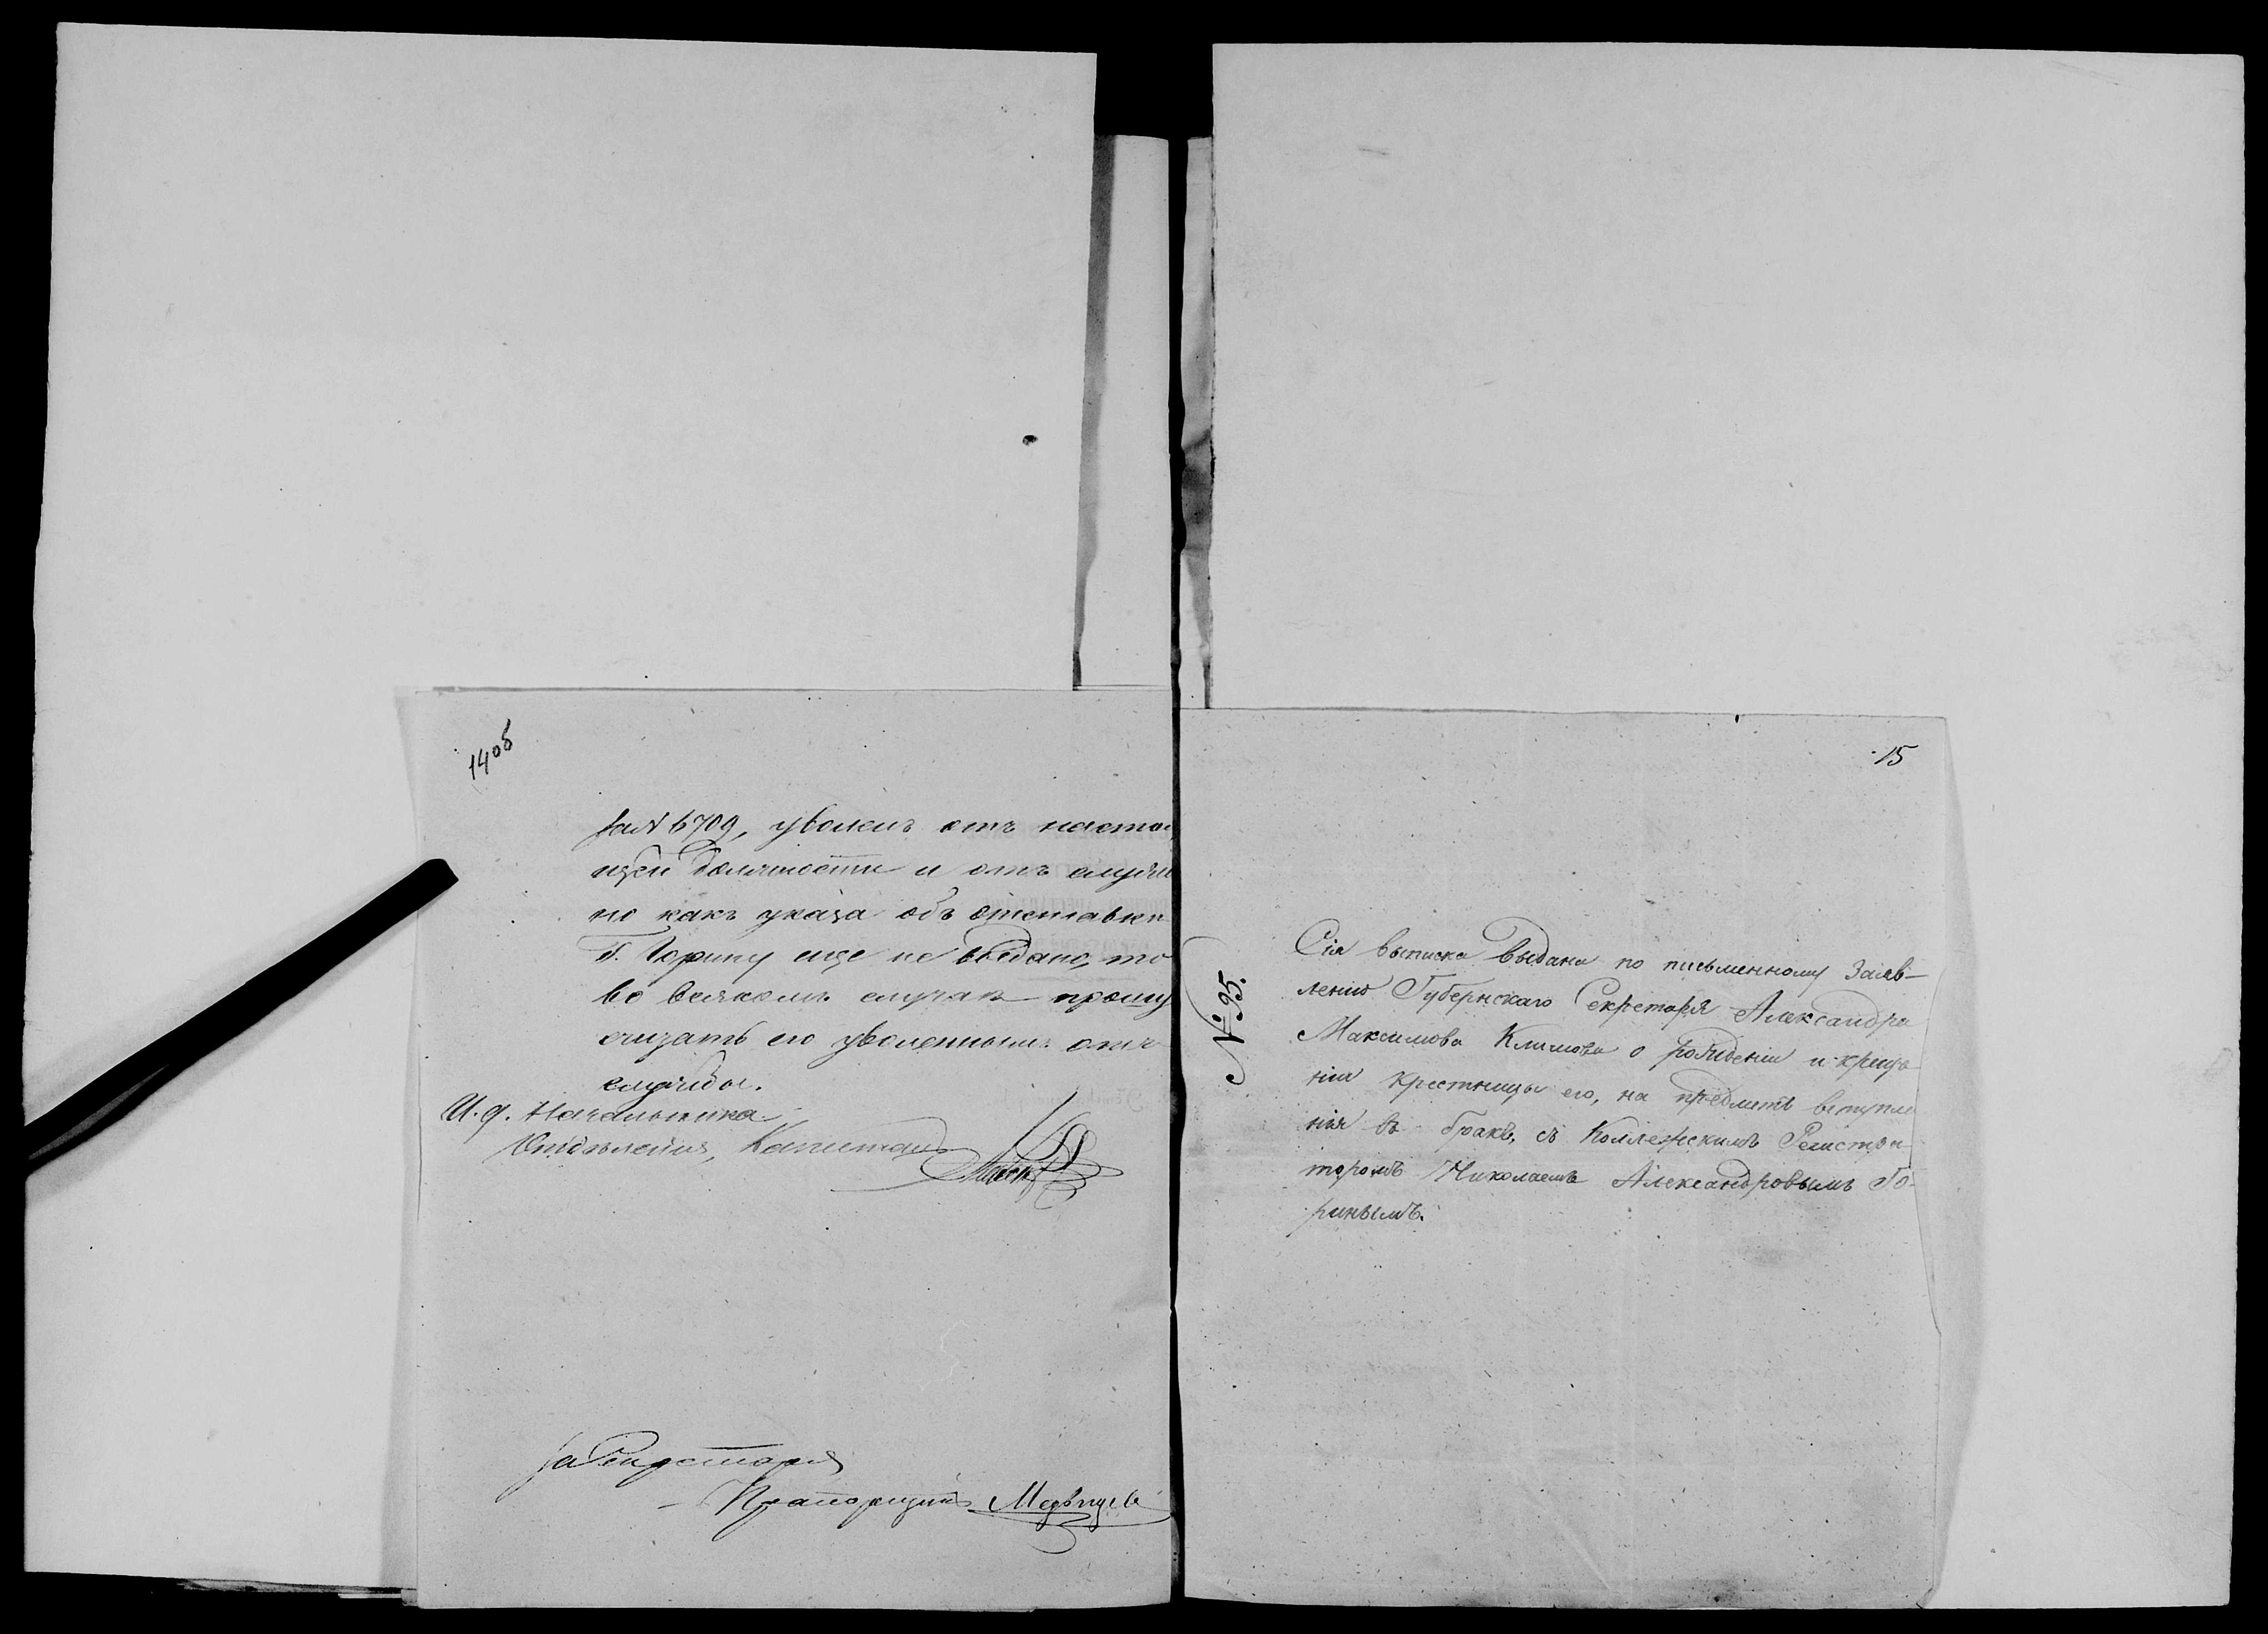 14об
за № 6709, уволенъ отъ настоя
щей должности и отъ служ
но какъ указа объ отставкѣ
Г. Горину еще не выдано, то
во всякомъ случаѣ прошу
считать его уволеннымъ отъ
службы.
И. д. Начальника
Отдѣленія, Капитанъ
За Секретаря
Прапорщикъ
15
№ 95.
Сія выписка выдана по письменному Заяв-
ленію Губернскаго Секретаря Александра
Максимова Климова о рожденіи и креще
ніи крестницы его, на предметъ вступле
нія въ бракъ, съ Коллежскимъ Регистра
торомъ Николаемъ Александровымъ Го-
ринымъ.